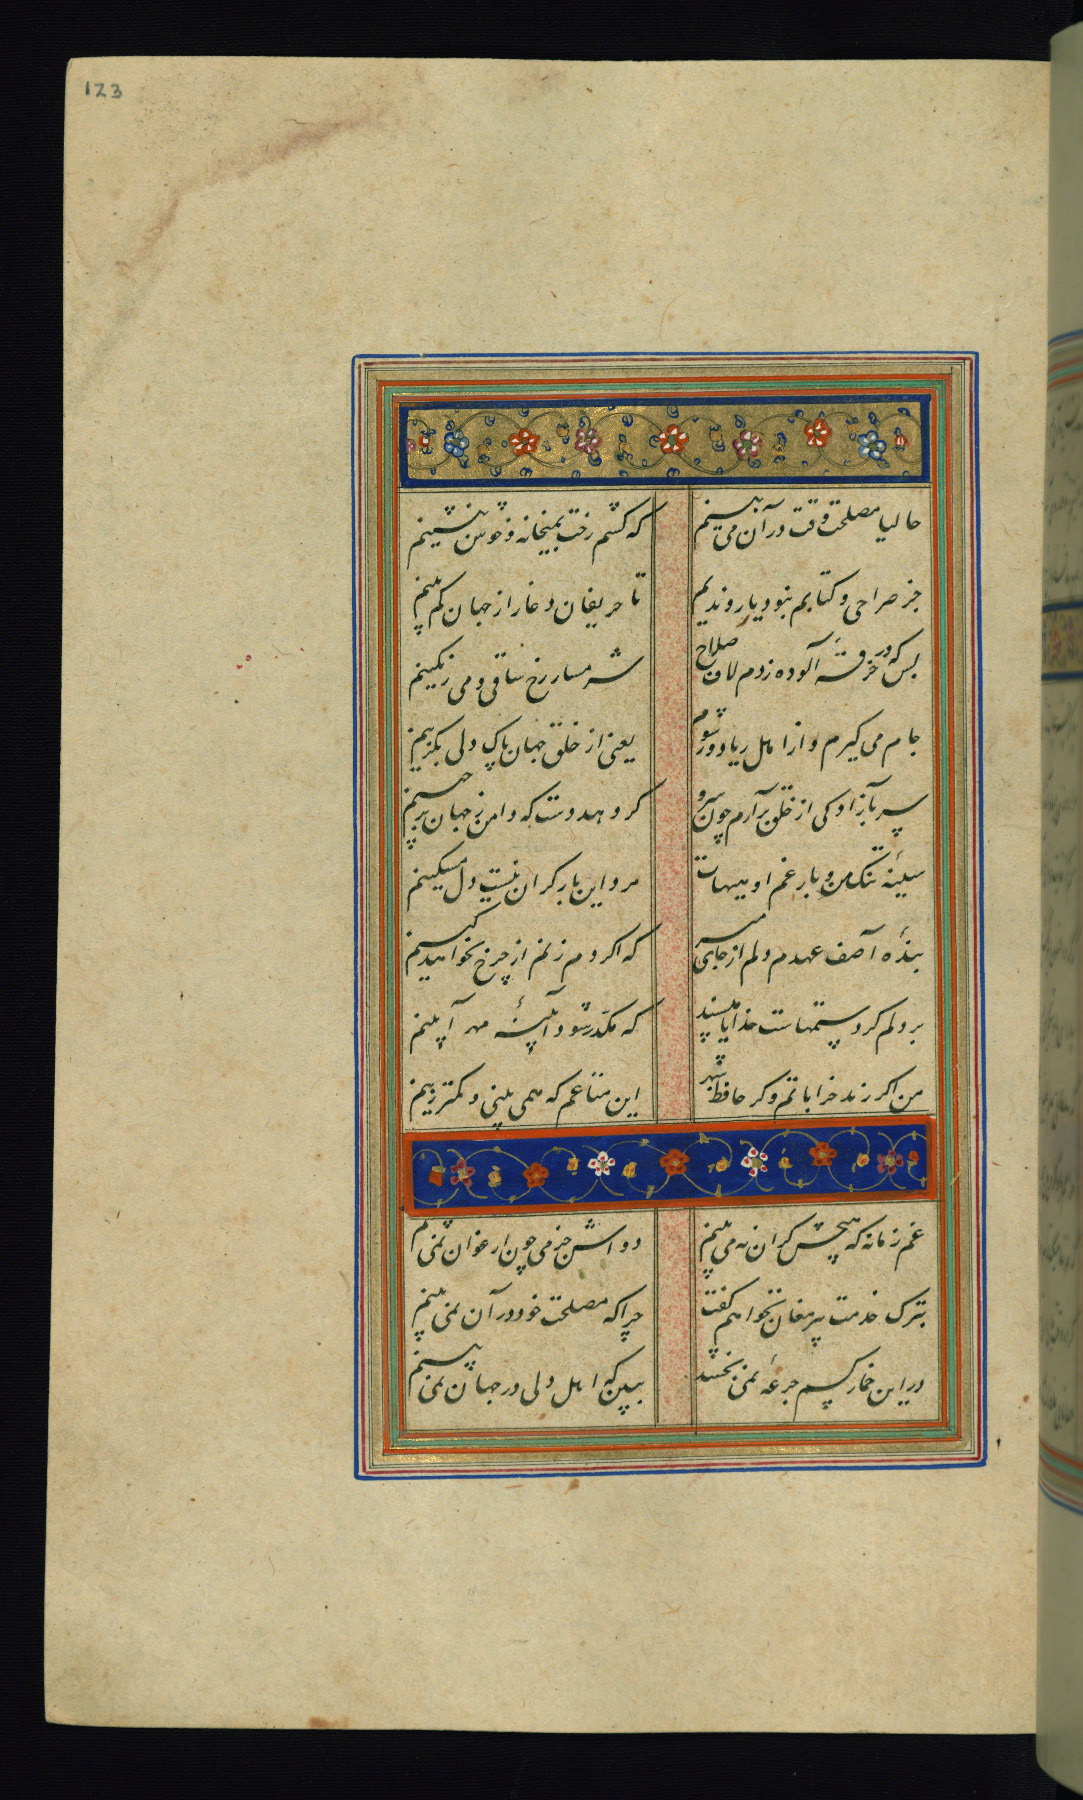 123
حالیا مصلحت وقت در آن می بینم
که کشم رخت بمیخانه و خوش بنشینم
جز صراحی و کتابم نبود یار و ندیم
تا حریفان دغا را ز جهان کم بینم
بس که در خرقه آلوده زدم لاف صلاح
شرمسار رخ ساقی و می رنگینم
جام می گیرم و از اهل ریا دور شوم
یعنی از خلق جهان پاک دلی بگزینم
سر بآزادگی از خلق برآرم چون سرو
گر دهد دست که دامن ز جهان برچینم
سینهٔ تنگ من و بار غم او هیهات
مرد این بار گران نیست دل مسکینم
بندهٔ آصف عهدم دلم از جای مبر
که اگر دم زنم از چرخ بخواهد کینم
بر دلم گرد ستمهاست خدایا مپسند
که مکدر شود آیینهٔ مهر آیینم
من اگر رند خراباتم و گر حافظ شهر
این متاعم که همی بینی و کمتر زینم
غم زمانه که هیچش کران نه می بینم
دواش جز می چون ارغوان نمی بینم
بترک خدمت پیر مغان نخواهم گفت
چرا که مصلحت خود در آن نمی بینم
در این خمار کسم جرعهٔ نمی بخشد
ببین که اهل دلی در جهان نمی بینم